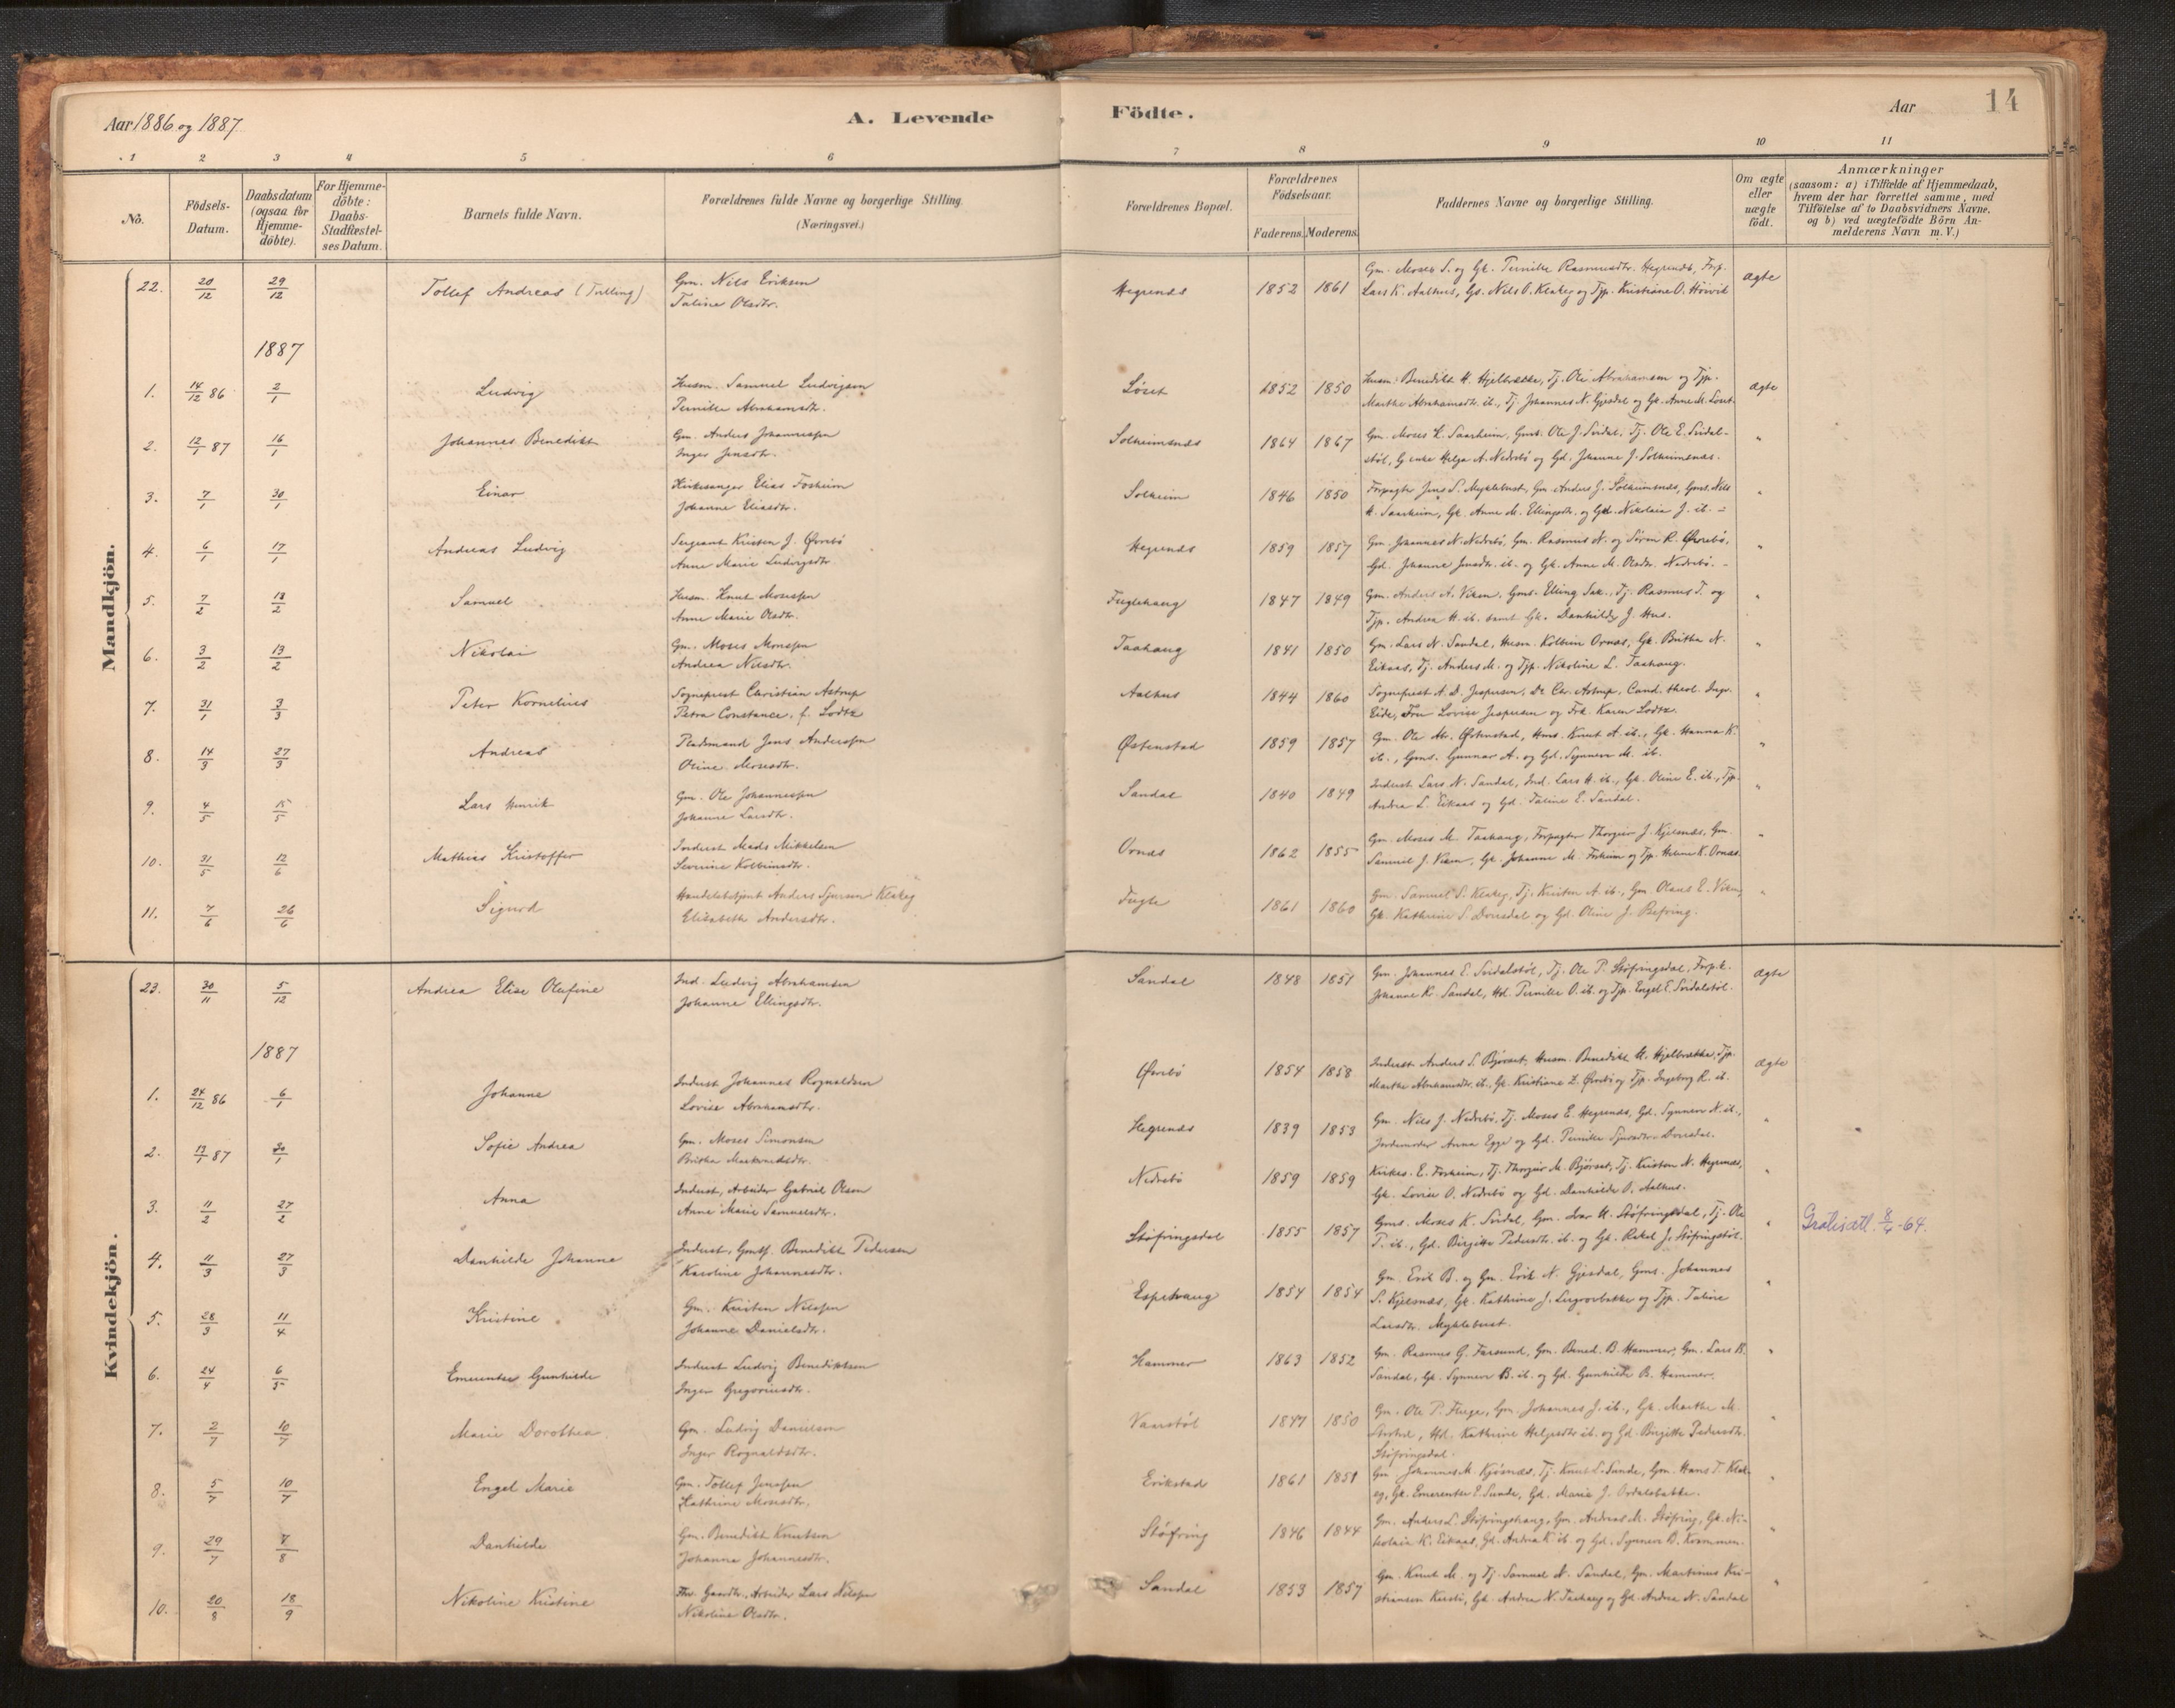 Aar 1886 og 1887.
A. Levende Födte.
Aar
14
1 2 3 4 5 6 7 8 9 10 11
No.
Födsels-Datum.
Daabsdatum (ogsaa for Hjemme-döbte).
For Hjemme-döbte: Daabs-Stadfæstel-ses Datum.
Barnets fulde Navn.
Forældrenes fulde Navne og borgerlige Stilling.
(Næringsvei.)
Forældrenes Bopæl.
Forældrenes Födselsaar.
Faderens. Moderens.
Faddernes Navne og borgerlige Stilling.
Om ægte eller uægte födt.
Anmærkninger
(saasom: a) i Tilfælde af Hjemmedaab,
hvem der har forrettet samme, med
Tilföielse af to Daabsvidners Navne,
og b) ved uægtefödte Börn An-
melderens Navn m. V.)
Mandkjön.
22. 20/12 29/12 Tollef Andreas (Tvilling) Gm. Nils Eriksen Hegrenæs 1852 1861 Gm. Moses S. og Gk. Pernille Rasmusdtr. Hegrenæs, Forp. ægte
Taline Olsdtr. Lars K. Aalhus, Gs. Nils O. Klakeg og Tjp. Kristiane O. Höivik
1887
1. 14/12 86 2/1 Ludvig Husm. Samuel Ludvigsen Löset 1852 1850 Husm. Benedikt H. Hjelbrække, Tj. Ole Abrahamsen og Tjp. ægte
Pernille Abrahamsdtr. Marthe Abrahamsdtr. ib., Tj. Johannes N. Gjesdal og Gk. Anne M. Löset.
2. 12/1 87 16/1 Johannes Benedikt Gm. Anders Johannessen Solheimsnæs 1864 1867 Gm. Moses K. Saarheim, Gms. Ole J. Svidal, Tj. Ole E. Svidal- "
Inger Jensdtr. stöl, G. enke Helga A. Nedrebö og Gd. Johanne J. Solheimsnæs.
3. 7/1 30/1 Einar Kirkesanger Elias Forheim Solheim 1846 1850 Forpagter Jens S. Myklebust, Gm. Anders J. Solheimsnæs, Gms. Nils "
Johanne Eliasdtr. K. Saarheim, Gk. Anne M. Ellingsdtr. og Gd. Nikolaia J. ib.
4. 6/1 17/1 Andreas Ludvig Sergeant Kristen J. Øvrebö Hegrenæs 1859 1857 Gm. Johannes N. Nedrebö, Gm. Rasmus N. og Sören R. Øvrebö, "
Anne Marie Ludvigsdtr. Gd. Johanne Jensdtr. ib. og Gk. Anne M. Olsdtr. Nedrebö.
5. 7/2 13/2 Samuel Husm. Knut Mosessen Fuglehaug 1847 1849 Gm. Anders A. Viken, Gms. Elling Sak., Tj. Rasmus T. og "
Anne Marie Olsdtr. Tjp. Andrea H. ib. samt Gk. Danhilde J. Hus.
6. 3/2 13/2 Nikolai Gm. Moses Monssen Taahaug 1841 1850 Gm. Lars N. Sandal, Husm. Kolbein Ornæs, Gk. Britha N. "
Andrea Nilsdtr. Eikaas, Tj. Anders M. og Tjp. Nikoline L. Taahaug.
7. 31/1 3/3 Peter Kornelius Sogneprest Christian Astrup Aalhus 1844 1860 Sogneprest A. D. Jespersen, Dr. Chr. Astrup, Cand. theol. Ingv. "
Petra Constance, f. Lodtz Eide, Fru Lovise Jespersen og Frk. Karen Lodtz.
8. 14/3 27/3 Andreas Pladsmand Jens Anderssen Østenstad 1859 1857 Gm. Ole Ab. Østenstad, Gms. Knut A. ib., Gk. Hanna K. "
Oline Mosesdtr. ib., Gms. Gunnar A. og Gd. Synneve M. ib.
9. 4/5 15/5 Lars Henrik Gm. Ole Johannessen Sandal 1840 1849 Inderst Lars N. Sandal, Ind. Lars H. ib., Gk. Oline E. ib., Tjp. "
Johanne Larsdtr. Andrea L. Eikaas og Gd. Taline E. Sandal.
10. 31/5 12/6 Mathias Kristoffer Inderst Mads Mikkelsen Ornæs 1862 1855 Gm. Moses M. Taahaug, Forpagter Thorgeir J. Kjelsnæs, Gm. "
Severine Kolbeinsdtr. Samuel J. Viken, Gk. Johanne M. Forheim og Tjp. Helene K. Ornæs.
11. 7/6 26/6 Sigurd Handelsbetjent Anders Sjursen Klakeg Fugle 1861 1860 Gm. Samuel S. Klakeg, Tj. Kristen A. ib., Gm. Olaus E. Viken, "
Elisabeth Andersdtr. Gk. Kathrine S. Dvrsdal og Gd. Oline J. Befring.
Kvindekjön.
23. 30/11 5/12 Andrea Elise Olufine Ind. Ludvig Abrahamsen Sandal 1848 1851 Gm. Johannes E. Svidalstöl, Tj. Ole P. Stöfringsdal, Forp.k. ægte
Johanne Ellingsdtr. Johanne K. Sandal, Hd. Pernille O. ib. og Tjp. Engel E. Svidalstöl.
1887
1. 24/12 86 6/1 Johanne Inderst Johannes Rognaldsen Øvrebö 1854 1858 Inderst Anders S. Björset, Husm. Benedikt H. Hjelbrække, Tjp. ægte
Lovise Abrahamsdtr. Marthe Abrahamsdtr. ib., Gk. Kristiane L. Øvrebö og Tjp. Ingeborg R. ib.
2. 13/1 87 30/1 Sofie Andrea Gm. Moses Simonsen Hegrenæs 1839 1853 Gm. Nils J. Nedrebö, Tj. Moses E. Hegrenæs, Gd. Synneve N. ib., "
Britha Markvardsdtr. Jordemoder Anna Egge og Gd. Pernille Sjursdtr. Dvrsdal.
3. 11/2 27/2 Anna Inderst, Arbeider Gabriel Olsen Nedrebö 1859 1859 Kirkes. E. Forheim, Tj. Thorgeir M. Björset, Tj. Kristen N. Hegrenæs, "
Anne Marie Samuelsdtr. Gk. Lovise O. Nedrebö og Gd. Danhilde O. Aalhus.
4. 11/3 27/3 Danhilde Johanna Inderst, Gmsf. Benedikt Pedersen Stöfringsdal 1855 1857 Gms. Moses K. Svidal, Gm. Ivar A. Stöfringsdal, Tj. Ole " Gratisatt. 8/4-64.
Karoline Johannesdtr. P. ib., Gd. Birgitte Pedersdtr. ib. og Gd. Rakel J. Stöfringstöl.
5. 28/3 11/4 Kristine Gm. Kristen Nilssen Espehaug 1854 1854 Gm. Erik B. og Gm. Erik N. Gjesdal, Gms. Johannes "
Johanne Danielsdtr. S. Kjelsnæs, Gk. Kathrine J. og Tjp. Taline
Larsdtr. Myklebust.
6. 24/4 6/5 Emerentse Gunhilde Inderst Ludvig Benediktsen Hammer 1863 1852 Gm. Rasmus G. Farsund, Gm. Bened. B. Hammer, Gm. Lars B. "
Inger Gregoriusdtr. Sandal, Gk. Synneve B. ib. og Gd. Gunhilde B. Hammer.
7. 2/7 10/7 Marie Dorothea Gm. Ludvig Danielsen Vaarstöl 1847 1850 Gm. Ole P. Fluge, Gm. Johannes J. ib., Gk. Marthe M. "
Inger Rognaldsdtr. Hd. Kathrine Helgesdtr. ib. og Gd. Birgitte Pedersdtr.
Stöfringsdal.
8. 5/7 10/7 Engel Marie Gm. Tollef Jenssen Erikstad 1861 1851 Gm. Johannes M. Kjösnæs, Tj. Knut L. Sunde, Gm. Hans T. Klak- "
Kathrine Mosesdtr. eg, Gk. Emerentse E. Sunde, Gd. Marie J. Ordalsbakke.
9. 29/7 7/8 Danhilde Gm. Benedikt Knutsen Stöfring 1846 1844 Gm. Anders L. Stöfringshaug, Gm. Andreas M. Stöfring, Gk. Ni- "
Johanna Johannesdtr. kolaia K. Eikaas, Gd. Andrea K. ib. og Gd. Synneve B. Kvammen.
10. 20/8 18/9 Nikoline Kristine Arbeider Lars Nilssen Sandal 1853 1857 Gm. Knut M. og Tj. Samuel N. Sandal, Gm. Martinus Kri- "
Nikoline Olsdtr. stiansen Gk. Andrea N. Taahaug og Gd. Andrea N. Sandal